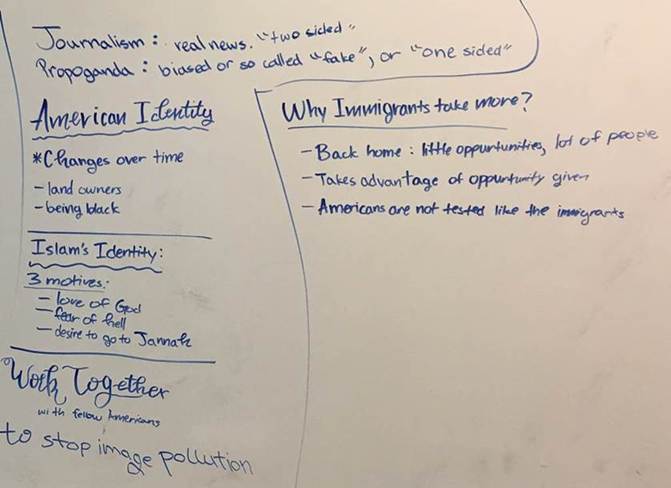 Journalism : real news. "two sided"
Propoganda : biased or so called "fake", or "one sided"
American Identity
*Changes over time
- land owners
- being black
Islam's Identity:
3 motives:
- love of God
- fear of hell
- desire to go to Jannah
Work Together
with fellow Americans
to stop image pollution
Why Immigrants take more?
- Back home : little oppurtunities, lot of people
- Takes advantage of oppurtunity given
- Americans are not tested like the immigrants